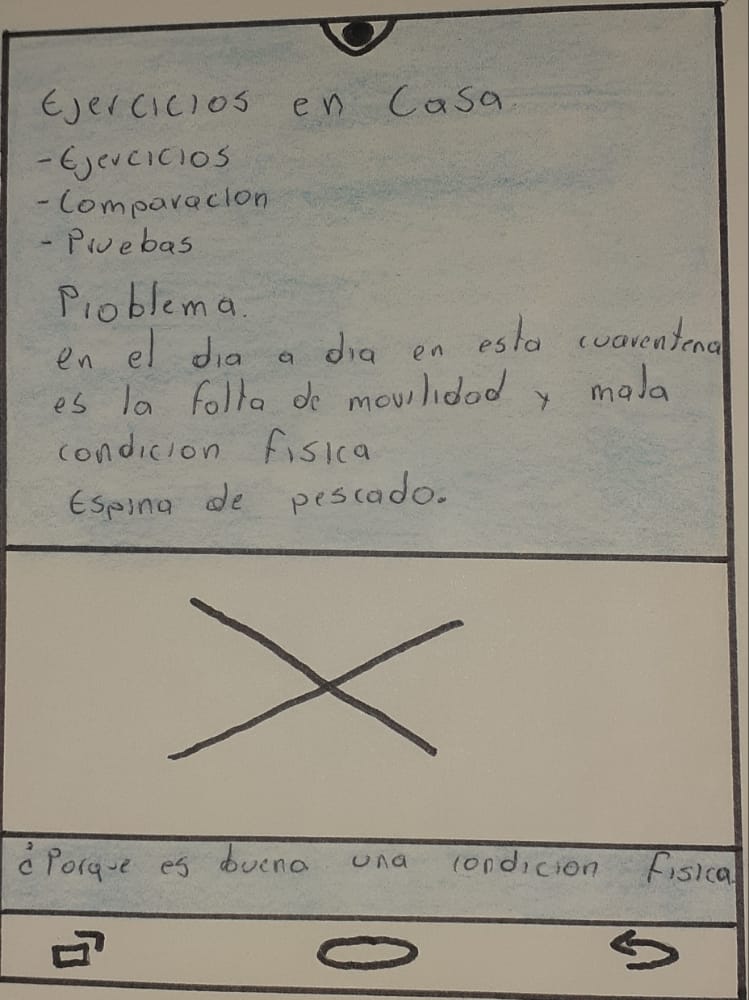 Ejercicios en Casa
- Ejercicios
- Comparacion
- Pruebas
Problema.
en el dia a dia en esta cuarentena
es la falta de movilidad y mala
condicion fisica
Espina de pescado.
¿Porque es buena una condicion fisica